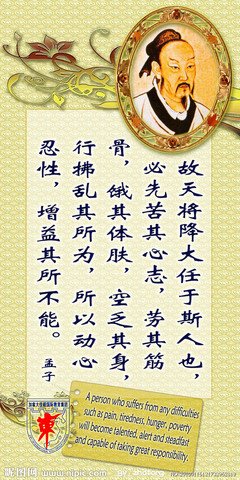 故天将降大任于斯人也，
必先苦其心志，劳其筋
骨，饿其体肤，空乏其身，
行拂乱其所为，所以动心
忍性，增益其所不能。
孟子
A person who suffers from any difficulties
such as pain, tiredness, hunger, poverty
will become talented, alert and steadfast
and capable of taking great responsibility.
昵图网 www.nipic.com